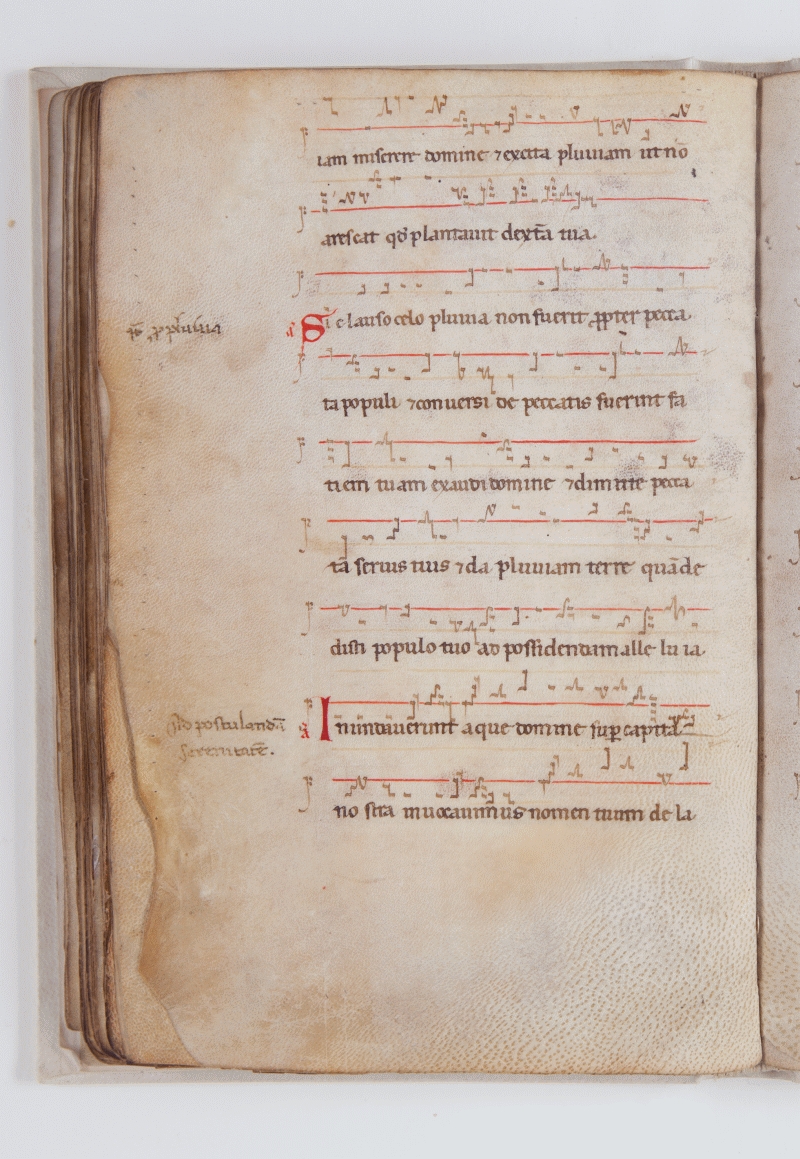 iam miserere domine ⁊ excita pluuiam ut nō
arescat qd̄ plantauit dextā tua.
ā Si clauso celo pluuia non fuerit ꝓpter pecca
ta populi ⁊ conuersi de peccatis fuerint fa
tiem tuam exaudi domine ⁊ dimitte pecca
tā seruis tuis ⁊ da pluuiam terre quā de
disti populo tuo ad possidendam alle lu ia.
ā Inundauerunt aque domine suꝑ capita
no stra inuocauimus nomen tuum de la
pluuia
postulandā
serenitatē.